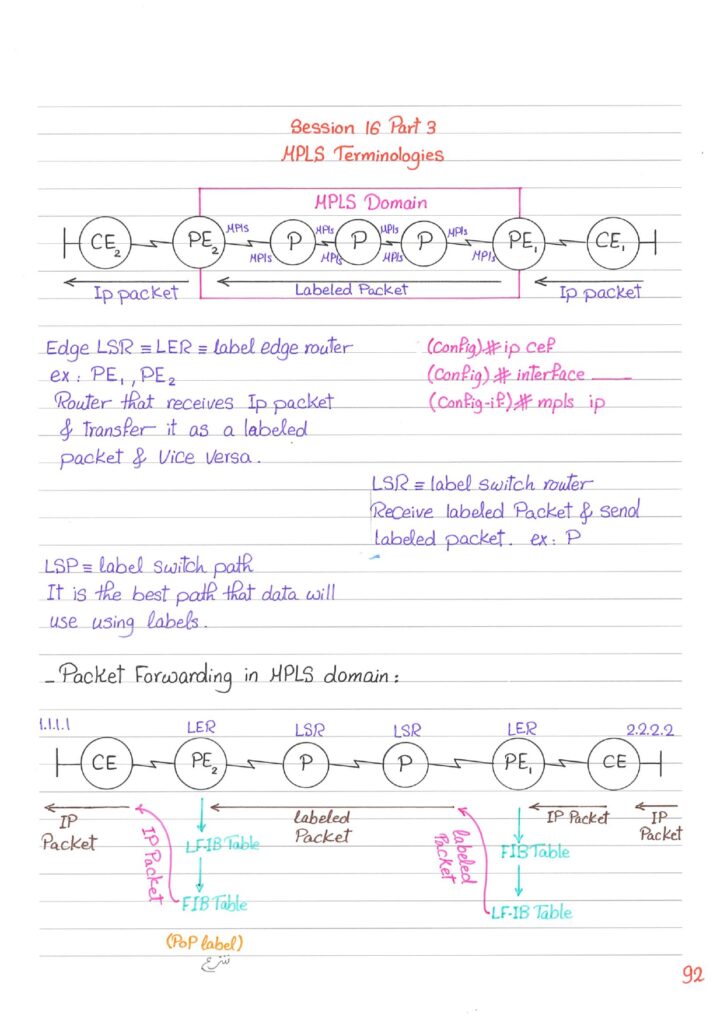 Session 16 Part 3
MPLS Terminologies
MPLS Domain
CE2 PE2 MPLS MPLS P MPLS MPLS P MPLS MPLS P MPLS MPLS PE1 CE1
Ip packet Labeled Packet Ip packet
Edge LSR ≡ LER ≡ label edge router
ex: PE1, PE2
Router that receives Ip packet
& Transfer it as a labeled
packet & Vice Versa.
(Config)# ip cef
(Config)# interface ____
(Config-if)# mpls ip
LSR ≡ label switch router
Receive labeled Packet & send
labeled packet. ex: P
LSP ≡ label switch path
It is the best path that data will
use using labels.
_ Packet Forwarding in MPLS domain:
1.1.1.1 LER LSR LSR LER 2.2.2.2
CE PE2 P P PE1 CE
IP
Packet
IP Packet
LF-IB Table
FIB Table
(PoP label)
شرح
labeled
Packet
labeled
Packet
FIB Table
LF-IB Table
IP Packet
IP
Packet
92